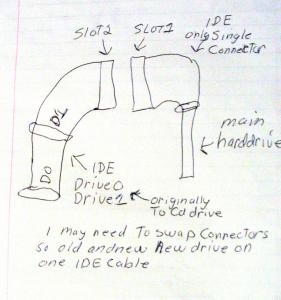 SLOT2
SLOT1
IDE
only single
Connector
D1
D0
main
harddrive
IDE
Drive0
Drive1
originally
To Cd drive
I may need To swap Connectors
So old and new New drive on
one IDE Cable